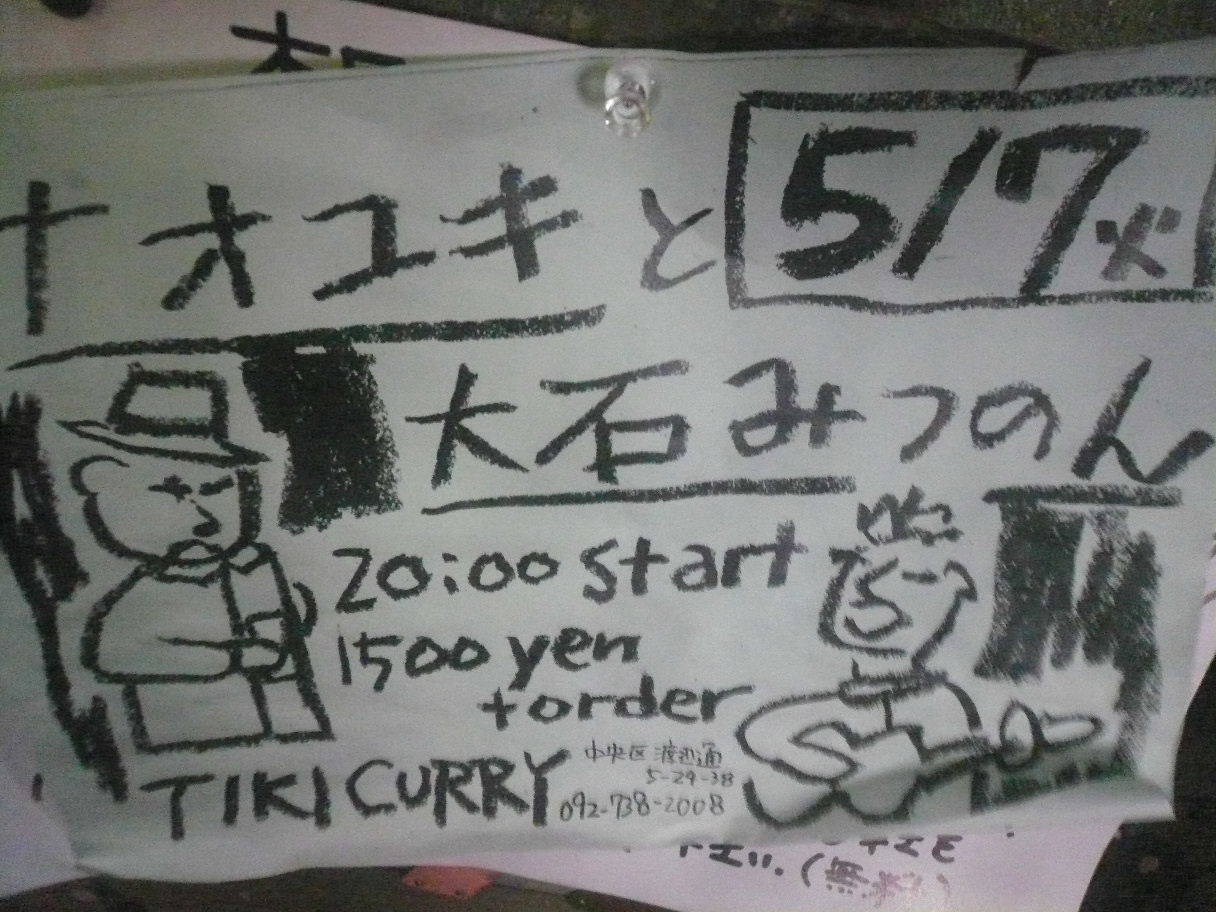 ナオユキと
5/7火
大石みつのん
20:00 start
1500 yen
+order
TIKI CURRY
中央区渡辺通
5-24-38
092-738-2008
(無料)